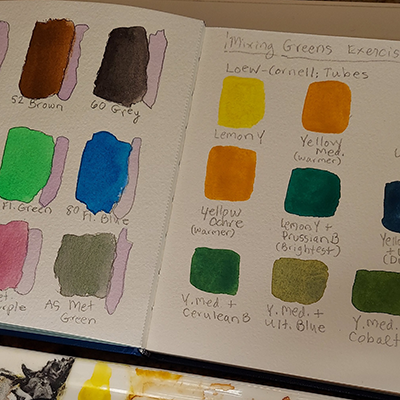 52 Brown
60 Grey
Fl. Green
80 Fl. Blue
AG Met
Green
Mixing Greens Exercis
Loew-Cornell: Tubes
Lemon Y
Yellow
Med.
(warmer)
Yellow
Ochre
(warmer)
Lemon Y +
Prussian B
(Brightest)
Y. med. +
Cerulean B
Y. med. +
Ult. Blue
Y. med.
Cobalt